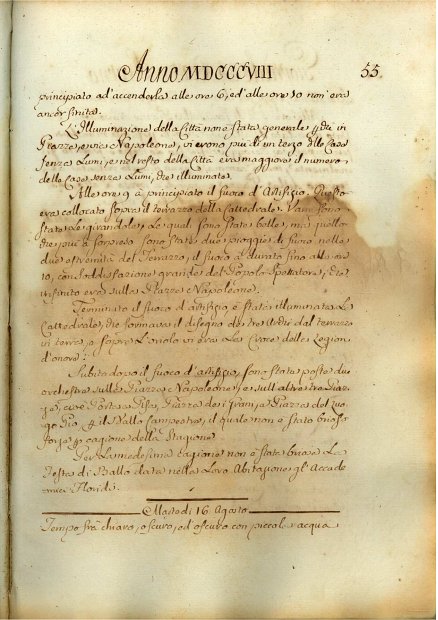 Anno MDCCCVIII
55.
principiato ad'accenderla alle ore 6, ed alle ore 10 non era
ancor finita.
L'Illuminazione della Città non è stata generale, in
Piazza, e via Napoleone, vi erono più di un terzo delle Case
senza Lumi, e nel resto della Città era maggiore il numero
delle Case senza Lumi, che illuminate.
Alle ore 9 à principiato il fuoco d'Artifizio. Questo
era collocato sopra il terrazzo della Cattedrale. Varie sono
state le girandole, le quali sono state belle, mà quello
che più à sorpreso sono state due pioggie di fuoco nelle
due estremità del Terrazzo, il fuoco à durato fino alle ore
10, con soddisfazione grande del Popolo Spettatore, che
infinito era sulla Piazza Napoleone.
Terminato il fuoco d'artifizio è stata illuminata la
Cattedrale, che formava il disegno de tre Archi dal terrazzo
in terra, e sopra l'orolo vi era la Croce della Legion
d'onore.
Subito dopo il fuoco d'artifizio, sono state poste due
orchestre sulla Piazza Napoleone, e sull'altre tre Piaz-
ze, cioè Porta a Pisa, Piazza de i Grani, e Piazza del
Pio, il Ballo Campestre, il quale non è stato
cagione della Stagione.
Per la medesima cagione non è stata la
Festa di Ballo data nella Loro Abitazione gl'Accade-
mici Floridi.
Martedi 16 Agosto
Tempo frà chiaro, oscuro, ed'oscuro con piccola acqua